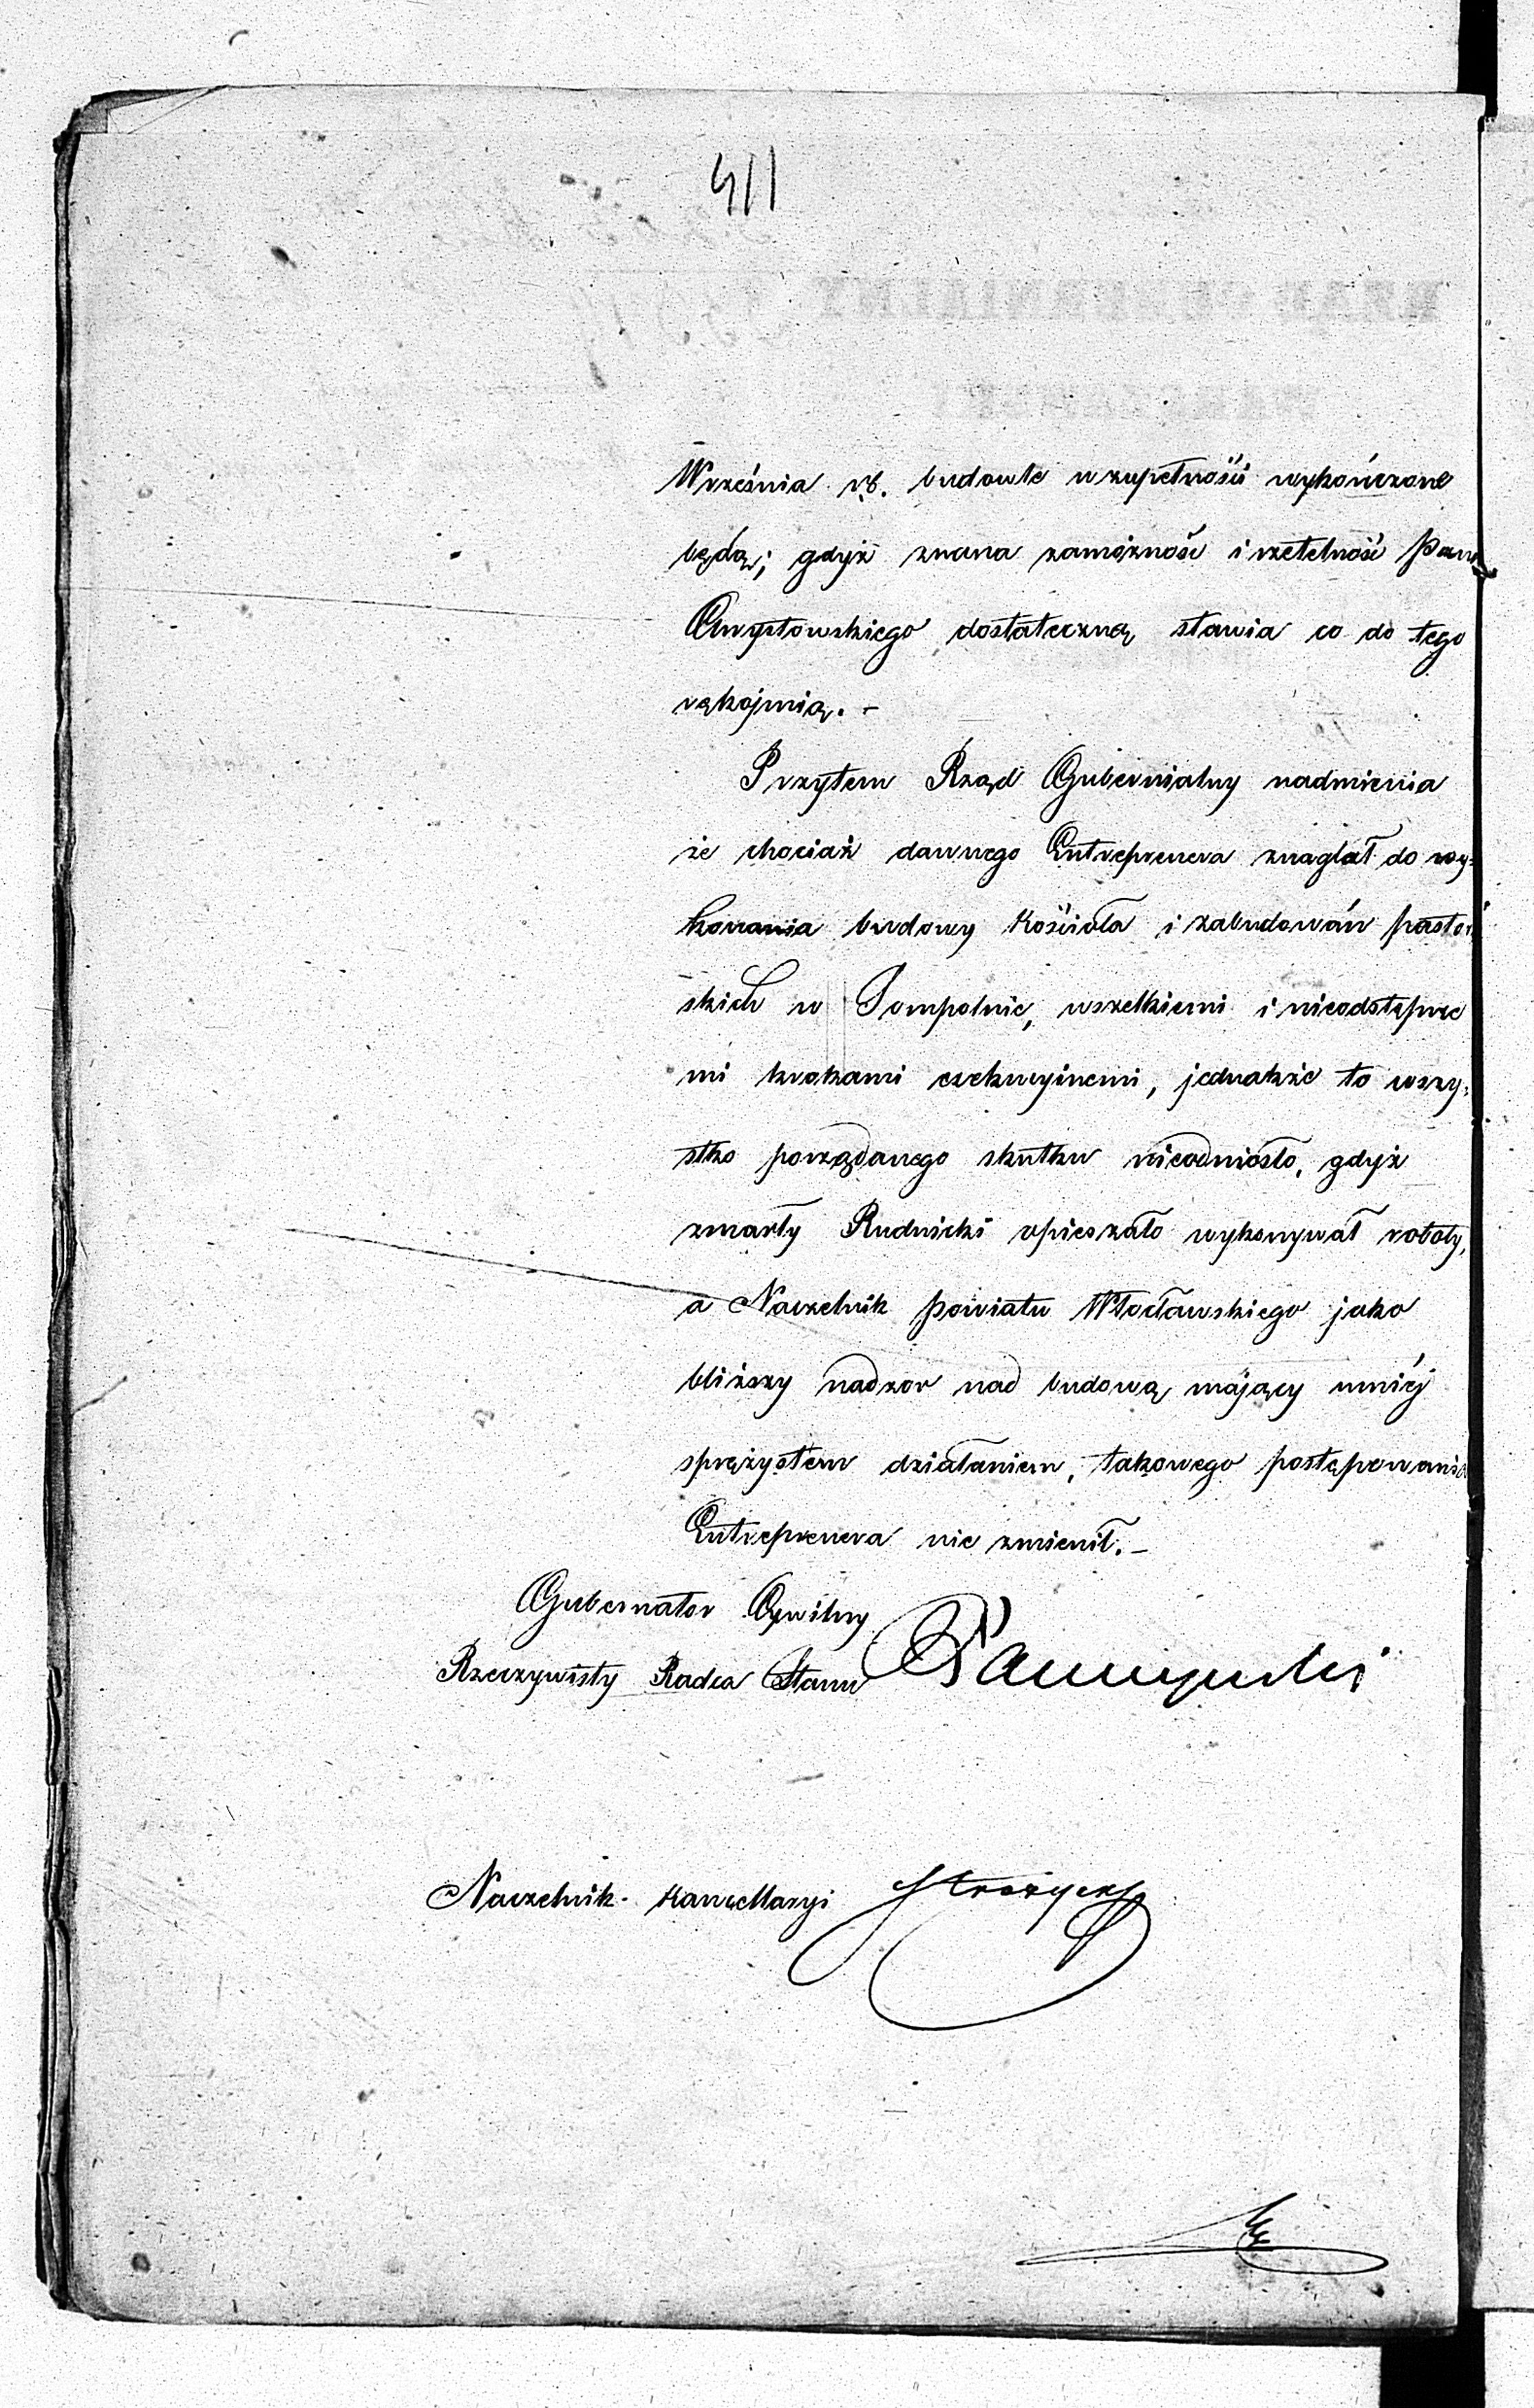 411
Września rb. budowle w zupełności wykończone
będą; gdyż znana zamożność i rzetelność Pana
Chrystowskiego dostateczną stawia co do tego
rękojmią. –
Przytem Rząd Gubernialny nadmienia
że chociaż dawnego Entreprenera znaglał do wy-
konania budowy Kościoła i zabudowań pastor
skich w Sompolnie, wszelkiemi i nieodstępne
mi krokami exekucyinemi, jednakże to wszy-
stko porządanego skutku nieodniosło, gdyż
zmarły Rudnicki opieszale wykonywał roboty,
a Naczelnik powiatu Włocławskiego jako
bliższy nadzor nad budową mający mniéj
sprężystem działaniem, takowego postępowania
Entreprenera nie zmienił. –
Gubernator Cywilny
Rzeczywisty Radca Stanu
Naczelnik Kancellaryi